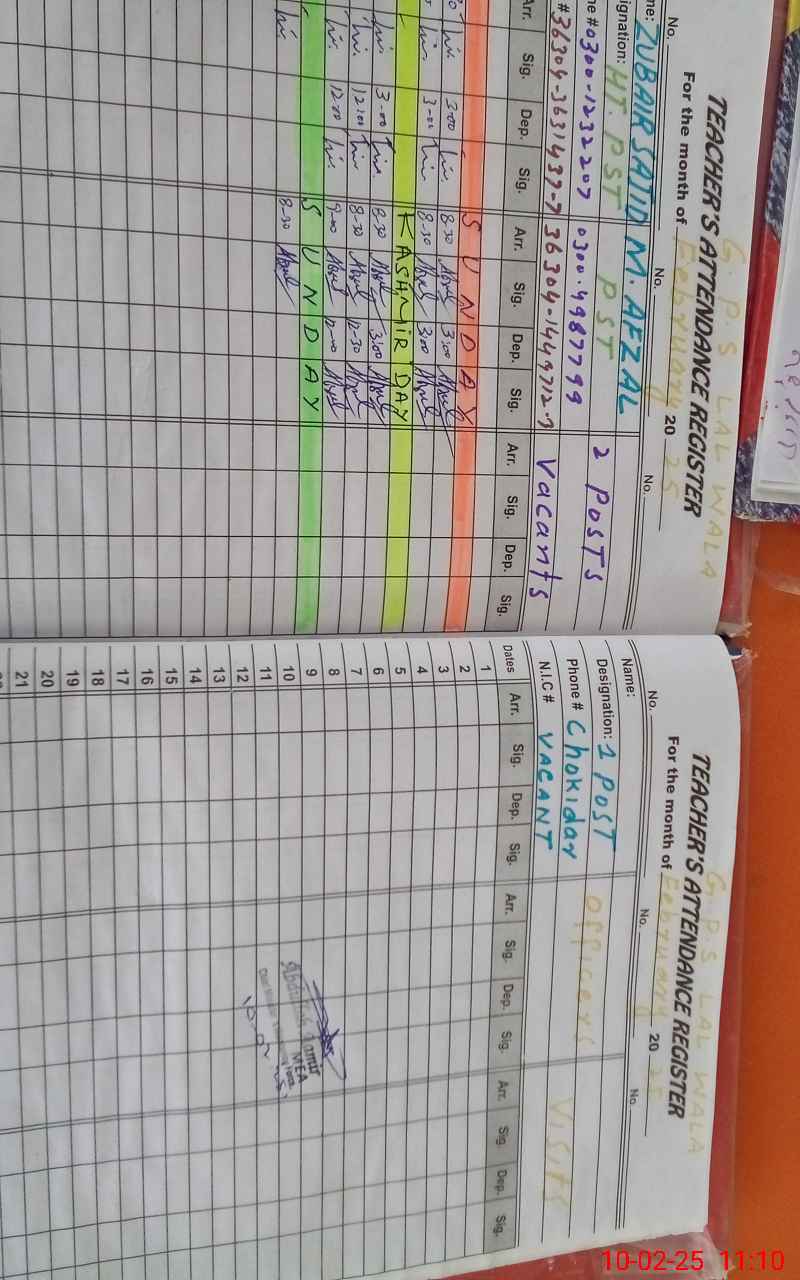 G. P. S LAL WALA
TEACHER'S ATTENDANCE REGISTER
For the month of February 2025
No. No. No.
me: ZUBAIR SAJID M. AFZAL
ignation: HT. PST PST 2 POSTS
ne # 0300-1232207 0300.4987799
# 36304-3631439-7 36304-1449712-7 Vacants
Arr. Sig. Dep. Sig. Arr. Sig. Dep. Sig. Arr. Sig. Dep. Sig.
S U N D A Y
3-00 8-30 3:00
3-00 8-30 3:00
KASHMIR DAY
3-00 8-30 3:00
12:00 8-30 12-30
12-00 9-00 12-00
S U N D A Y
8-30
G. P. S LAL WALA
TEACHER'S ATTENDANCE REGISTER
For the month of February 2025
No. No. No.
Name:
Designation: 1 POST Officers
Phone # Chokidar
N.I.C # VACANT Visits
Dates Arr. Sig. Dep. Sig. Arr. Sig. Dep. Sig. Arr. Sig. Dep. Sig.
1
2
3
4
5
6
7
8
9
10
MEA
11
12
13
14
15
16
17
18
19
20
21
10-02-25 11:10